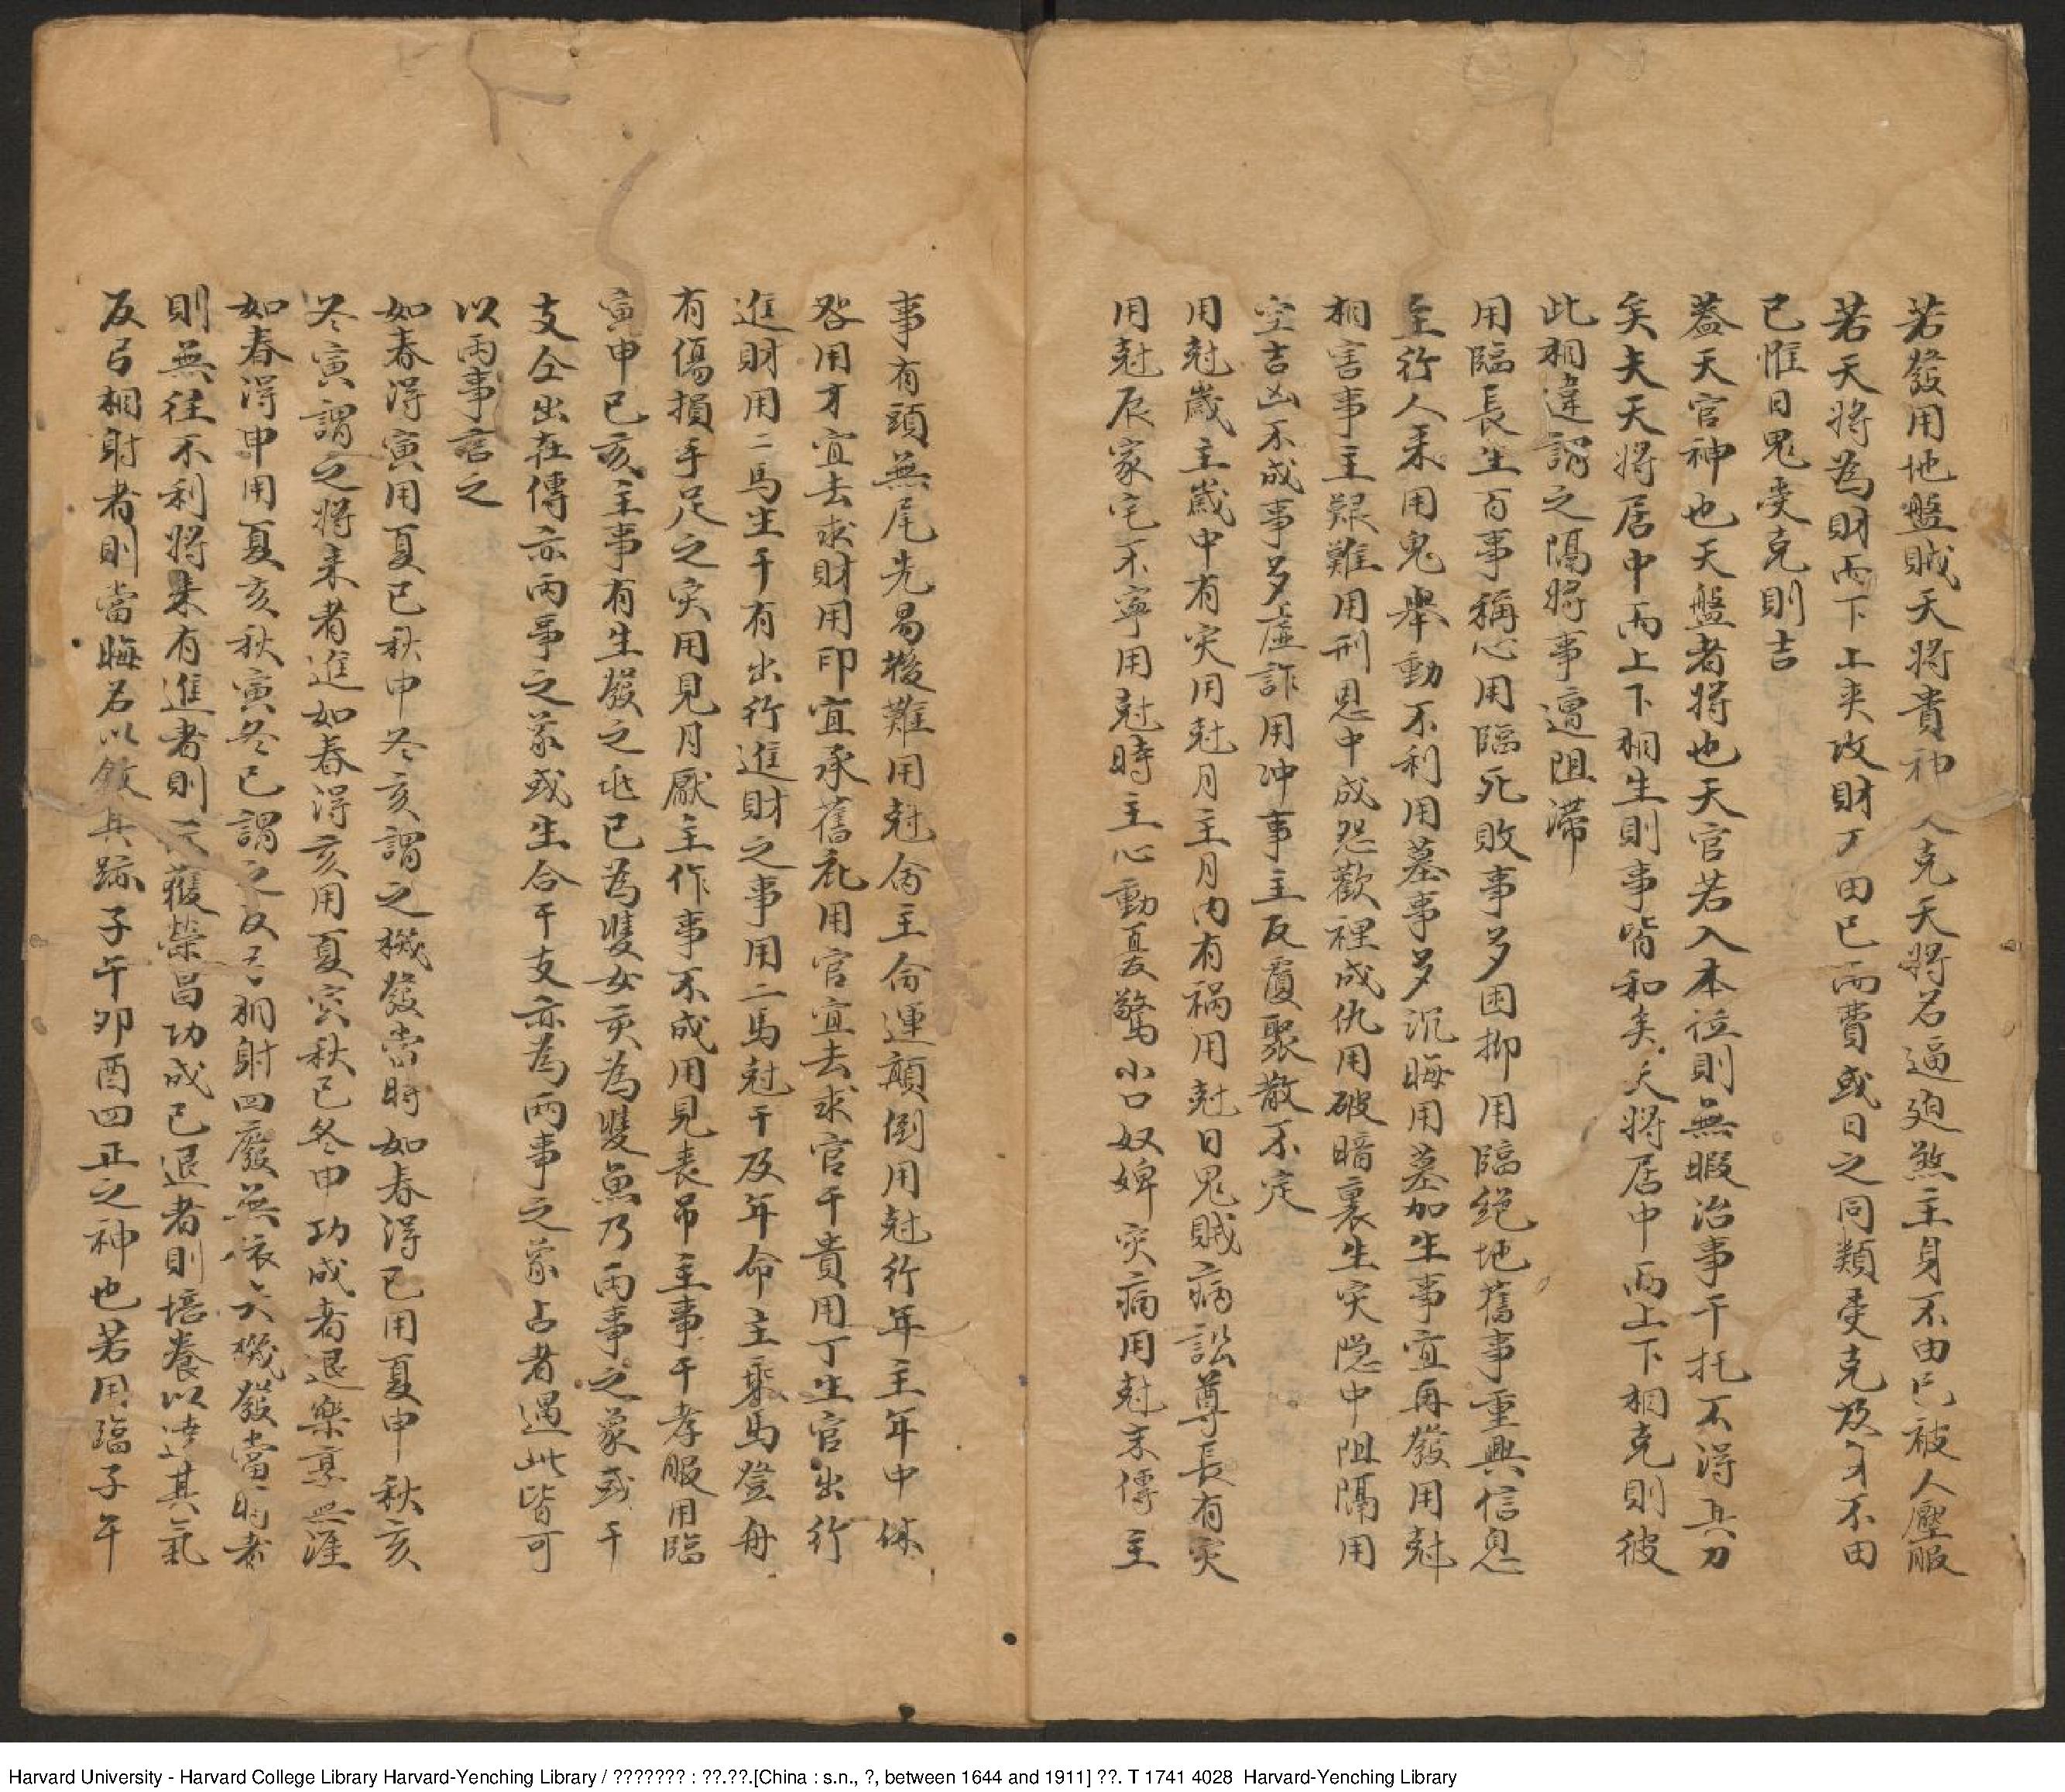 若發用地盤賊天將貴神人克天將名逼廹煞主身不由己被人壓服
若天將為財而下上夾攻財不由己而費或日之同類受克身不由
已惟日鬼受克則吉
葢天官神也天盤者將也天官若入本位則無暇治事干托不得其力
矣夫天將居中而上下相生則事皆和矣天將居中而上下相克則彼
此相違謂之隔將事適阻滯
用臨長生百事稱心用臨死敗事多困抑用臨絕地舊事重興信息
至行人来用鬼舉動不利用墓事多沉晦用墓加生事宜再發用尅
相害事主艱難用刑恩中成怨歡裡成仇用破暗裏生灾隐中阻隔用
空吉凶不成事多虛詐用沖事主反覆聚散不定
用尅歲主歲中有灾用尅月主月內有禍用尅日鬼賊病訟尊長有灾
用尅辰家宅不寧用尅時主心動憂驚小口奴婢灾病用尅末傳主
事有頭無尾先易後難用尅命主命運顛倒用尅行年主年中休
咎用才宜去求財用印宜承舊礼用官宜去求官干貴用丁生官出行
進財用二馬生干有出行進財之事用二馬尅干及年命主乘馬登舟
有傷損手足之灾用見月厭主作事不成用見丧吊主事干孝服用臨
寅申巳亥主事有生發之兆巳為雙女亥為雙魚乃兩事之象或干
支仝出在傳亦兩事之象或生合干支亦為兩事之象占者遇此皆可
以兩事言之
如春得寅用夏巳秋申冬亥謂之機發當時如春得巳用夏申秋亥
冬寅謂之將来者進如春得亥用夏寅秋巳冬申功成者退樂享無涯
如春得申用夏亥秋寅冬巳謂之反弓相射四廢無依六機發當時者
則無往不利將来有進者則獲榮昌功成已退者則培養以達其氣
反弓相射者則當晦名以斂其跡子午卯酉四正之神也若用臨子午